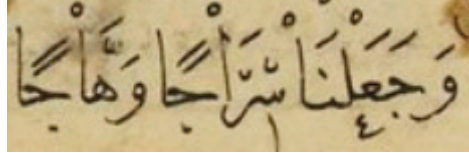 وَجَعَلْنَا سِّرَاجًا وَهَّاجًا